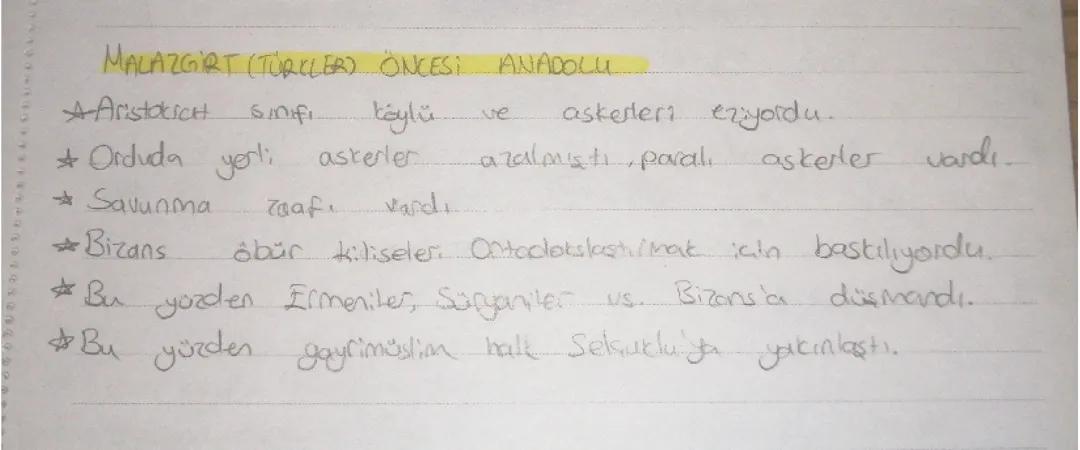 MALAZGİRT (TÜRKLER) ÖNCESİ ANADOLU
☆ Aristokrat sınıfı köylü ve askerleri eziyordu.
☆ Orduda yerli askerler azalmıştı, paralı askerler vardı.
☆ Savunma zaafı vardı
☆ Bizans öbür kiliseleri Ortodokslaştırmak için baskılıyordu.
☆ Bu yüzden Ermeniler, Süryaniler vs. Bizans'a düşmandı.
☆ Bu yüzden gayrimüslim halk Selçuklu'ya yakınlaştı.